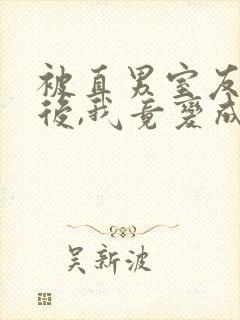 被直男室友
後,我竟變成
吴新波